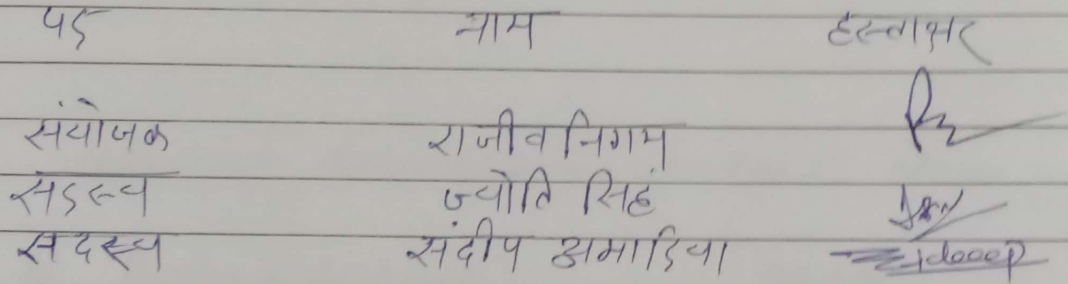 पद नाम हस्ताक्षर
संयोजक राजीव निगम
सदस्य ज्योति सिहं
सदस्य संदीप अमाडिया